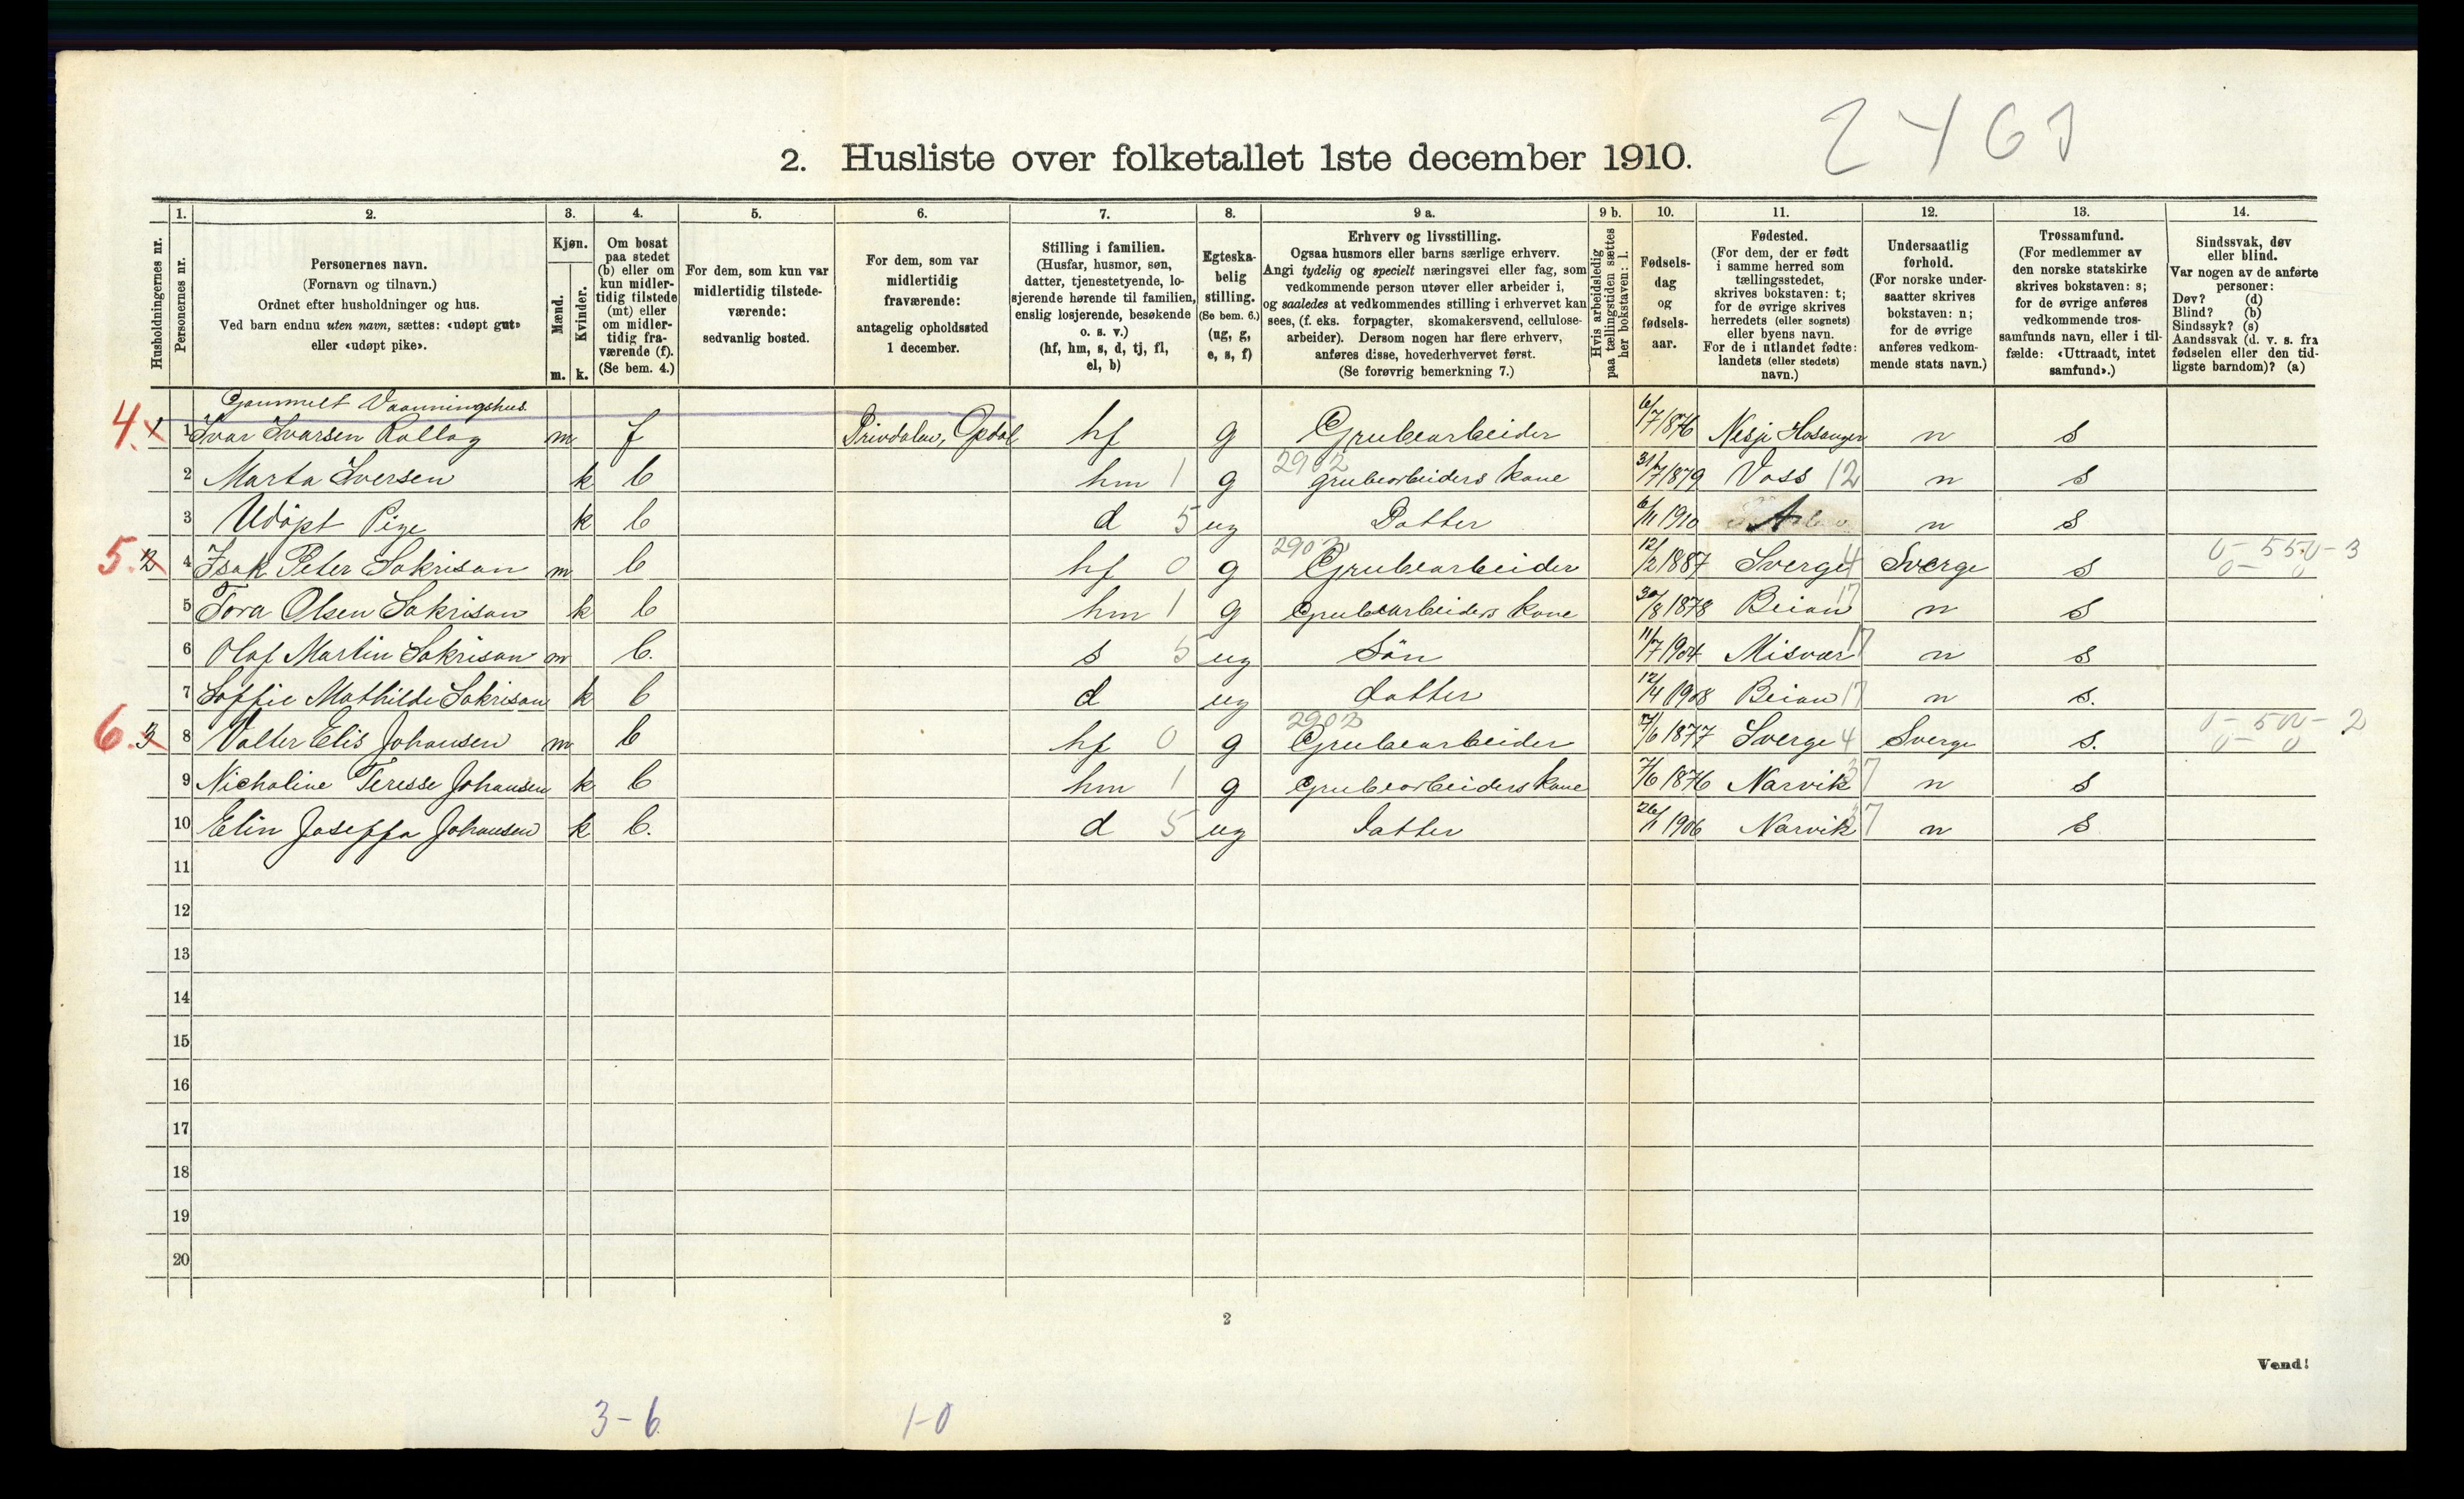 2. Husliste over folketallet 1ste december 1910.
Husholdningernes nr.
1. Personernes nr.
2. Personernes navn.
(Fornavn og tilnavn.)
Ordnet efter husholdninger og hus.
Ved barn endnu uten navn, sættes: «udøpt gut»
eller «udøpt pike».
3. Kjøn.
Mænd. m.
Kvinder. k.
4. Om bosat
paa stedet
(b) eller om
kun midler-
tidig tilstede
(mt) eller
om midler-
tidig fra-
værende (f).
(Se bem. 4.)
5. For dem, som kun var
midlertidig tilstede-
værende:
sedvanlig bosted.
6. For dem, som var
midlertidig
fraværende:
antagelig opholdssted
1 december.
7. Stilling i familien.
(Husfar, husmor, søn,
datter, tjenestetyende, lo-
sjerende hørende til familien,
enslig losjerende, besøkende
o. s. v.)
(hf, hm, s, d, tj, fl,
el, b)
8. Egteska-
belig
stilling.
(Se bem. 6.)
(ug, g,
e, s, f)
9 a. Erhverv og livsstilling.
Ogsaa husmors eller barns særlige erhverv.
Angi tydelig og specielt næringsvei eller fag, som
vedkommende person utøver eller arbeider i,
og saaledes at vedkommendes stilling i erhvervet kan
sees, (f. eks. forpagter, skomakersvend, cellulose-
arbeider). Dersom nogen har flere erhverv,
anføres disse, hovederhvervet først.
(Se forøvrig bemerkning 7.)
9 b. Hvis arbeidsledig
paa tællingstiden sættes
her bokstaven: l.
10. Fødsels-
dag
og
fødsels-
aar.
11. Fødested.
(For dem, der er født
i samme herred som
tællingsstedet,
skrives bokstaven: t;
for de øvrige skrives
herredets (eller sognets)
eller byens navn.
For de i utlandet fødte:
landets (eller stedets)
navn.)
12. Undersaatlig
forhold.
(For norske under-
saatter skrives
bokstaven: n;
for de øvrige
anføres vedkom-
mende stats navn.)
13. Trossamfund.
(For medlemmer av
den norske statskirke
skrives bokstaven: s;
for de øvrige anføres
vedkommende tros-
samfunds navn, eller i til-
fælde: «Uttraadt, intet
samfund».)
14. Sindssvak, døv
eller blind.
Var nogen av de anførte
personer:
Døv? (d)
Blind? (b)
Sindssyk? (s)
Aandssvak (d. v. s. fra
fødselen eller den tid-
ligste barndom)? (a)
Gammelt Vaaningshus
4. 1 1 Ivar Ivarsen Rollag m f Drivdalen, Opdal hf g Grubearbeider 6/7 1876 Nesje Hosanger n s
2 Marta Iversen k b hm 1 g 2902 grubearbeiders kone 31/7 1879 Voss 12 n s
3 Udöpt Pige k b d 5 ug Datter 6/11 1910 n s
5. 2 4 Isak Peter Sakrison m b hf 0 g 2902 Grubearbeider 12/2 1887 Sverge 4 Sverge s 0-550-3
5 Tora Olsen Sakrison k b hm 1 g Grubearbeiders kone 30/8 1878 Beian 17 n s
6 Olaf Martin Sakrison m b. s 5 ug Sön 11/7 1904 Misvær 17 n s
7 Soffie Mathilde Sakrison k b d ug datter 12/4 1908 Beian 17 n s.
6. 3 8 Valter Elis Johansen m b hf 0 g 2902 Grubearbeider 1877 Sverge 4 Sverge s. 0-500-2
9 Nicholine Teresse Johansen k b hm 1 g Grubearbeiders kone 7/6 1876 Narvik 17 n s
10 Elin Joseffa Johansen k b. d 5 ug datter 26/1 1906 Narvik 17 n s
11
12
13
14
15
16
17
18
19
20
2
Vend!
3-6 1-0